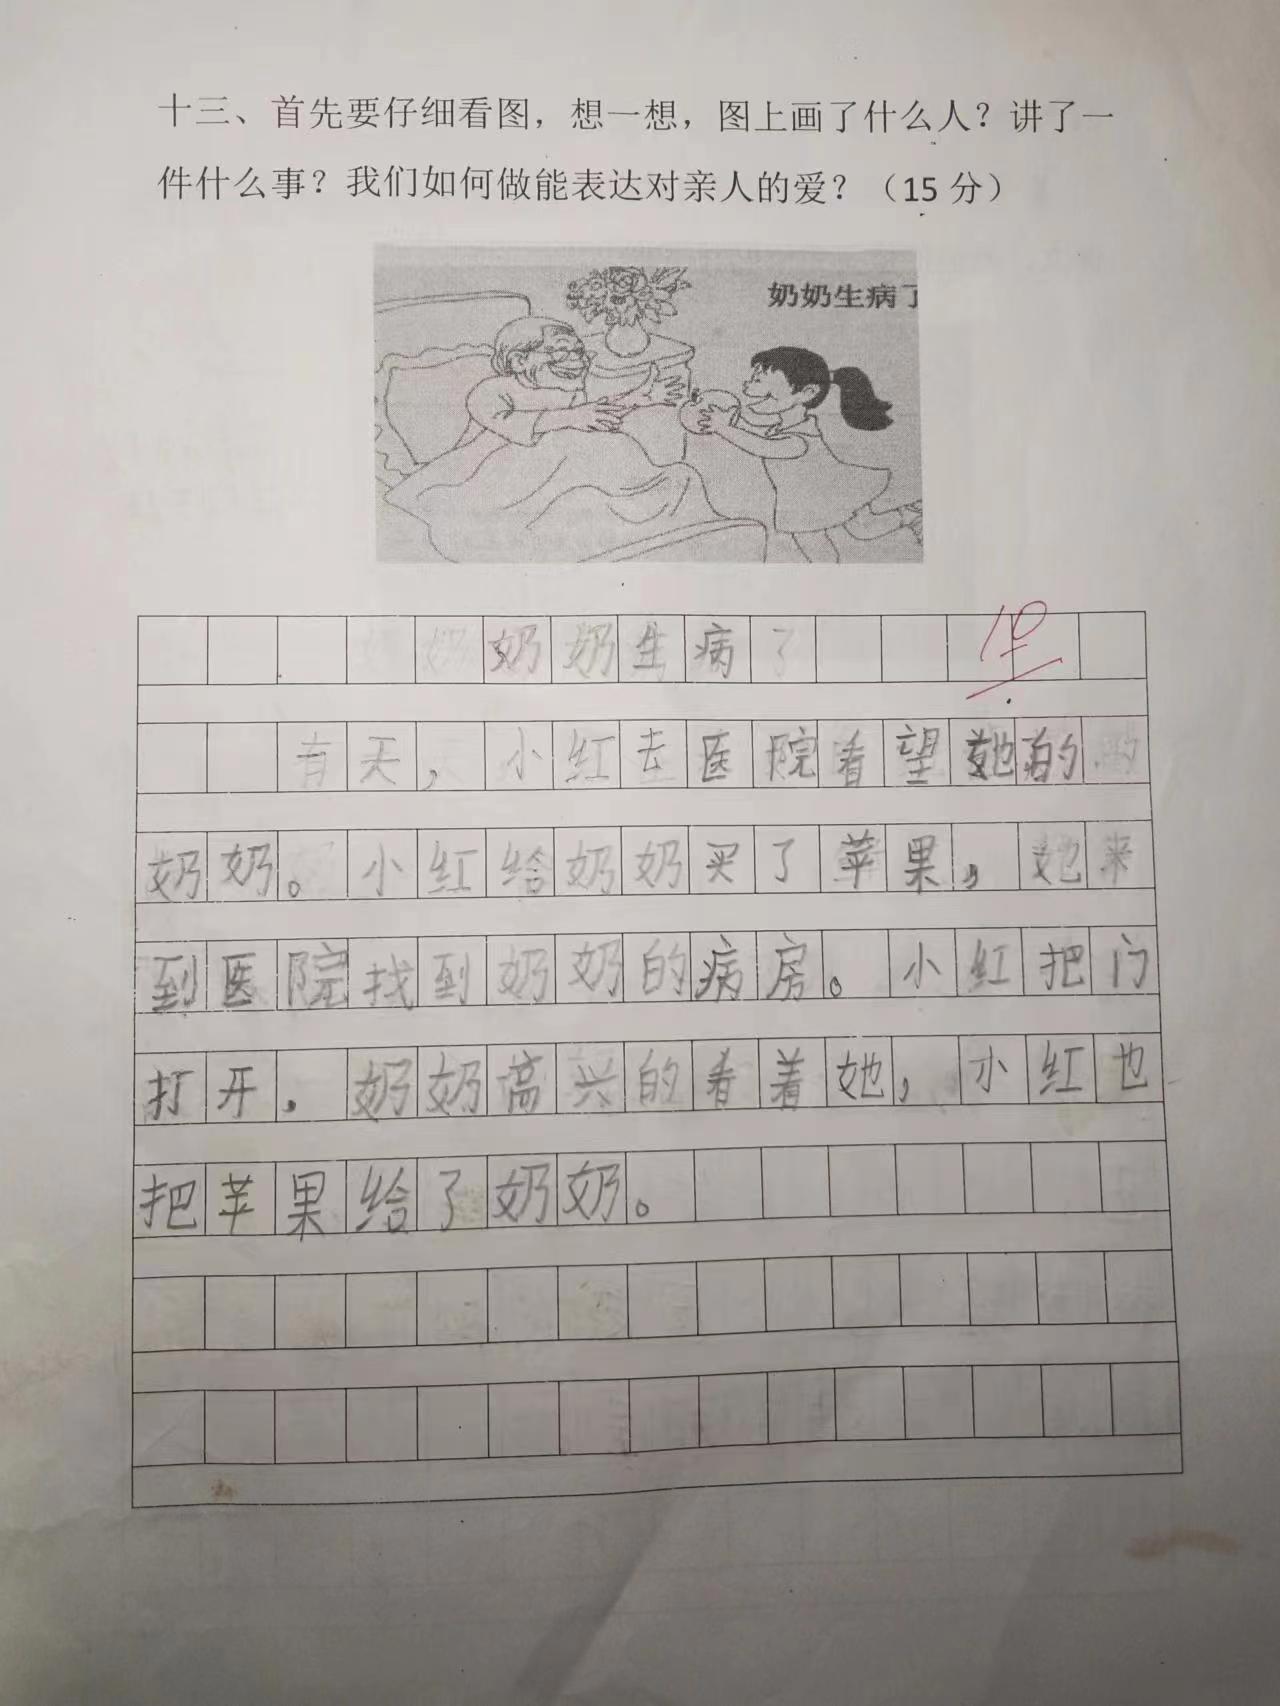 十三、首先要仔细看图，想一想，图上画了什么人？讲了一
件什么事？我们如何做能表达对亲人的爱？（15 分）
奶奶生病了
奶奶生病了
10
有天，小红去医院看望她的
奶奶。小红给奶奶买了苹果，她来
到医院找到奶奶的病房。小红把门
打开，奶奶高兴的看着她，小红也
把苹果给了奶奶。